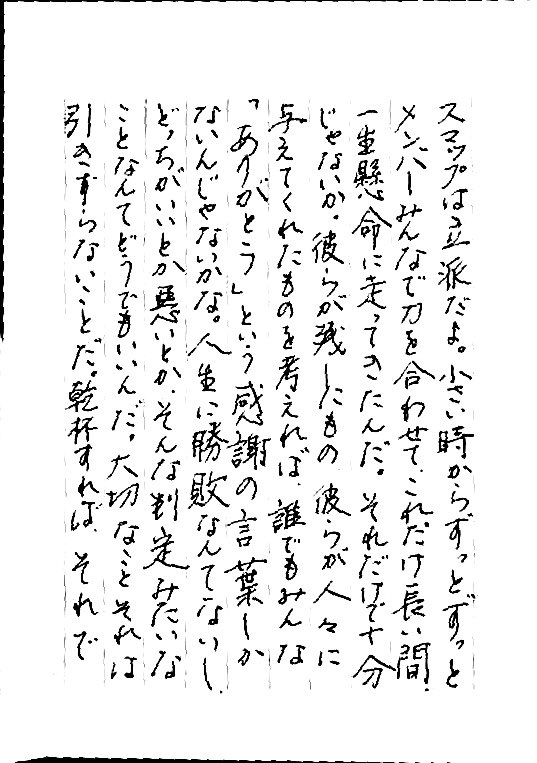 スマップは立派だよ。小さい時からずっとずっと
メンバーみんなで力を合わせて、これだけ長い間、
一生懸命に走ってきたんだ。それだけで十分
じゃないか。彼らが残したもの、彼らが人々に
与えてくれたものを考えれば、誰でもみんな
「ありがとう」という感謝の言葉しか
ないんじゃないかな。人生に勝敗なんてないし、
どっちがいいとか悪いとか、そんな判定みたいな
ことなんてどうでもいいんだ。大切なことそれは
引きずらないことだ。乾杯すれば、それで